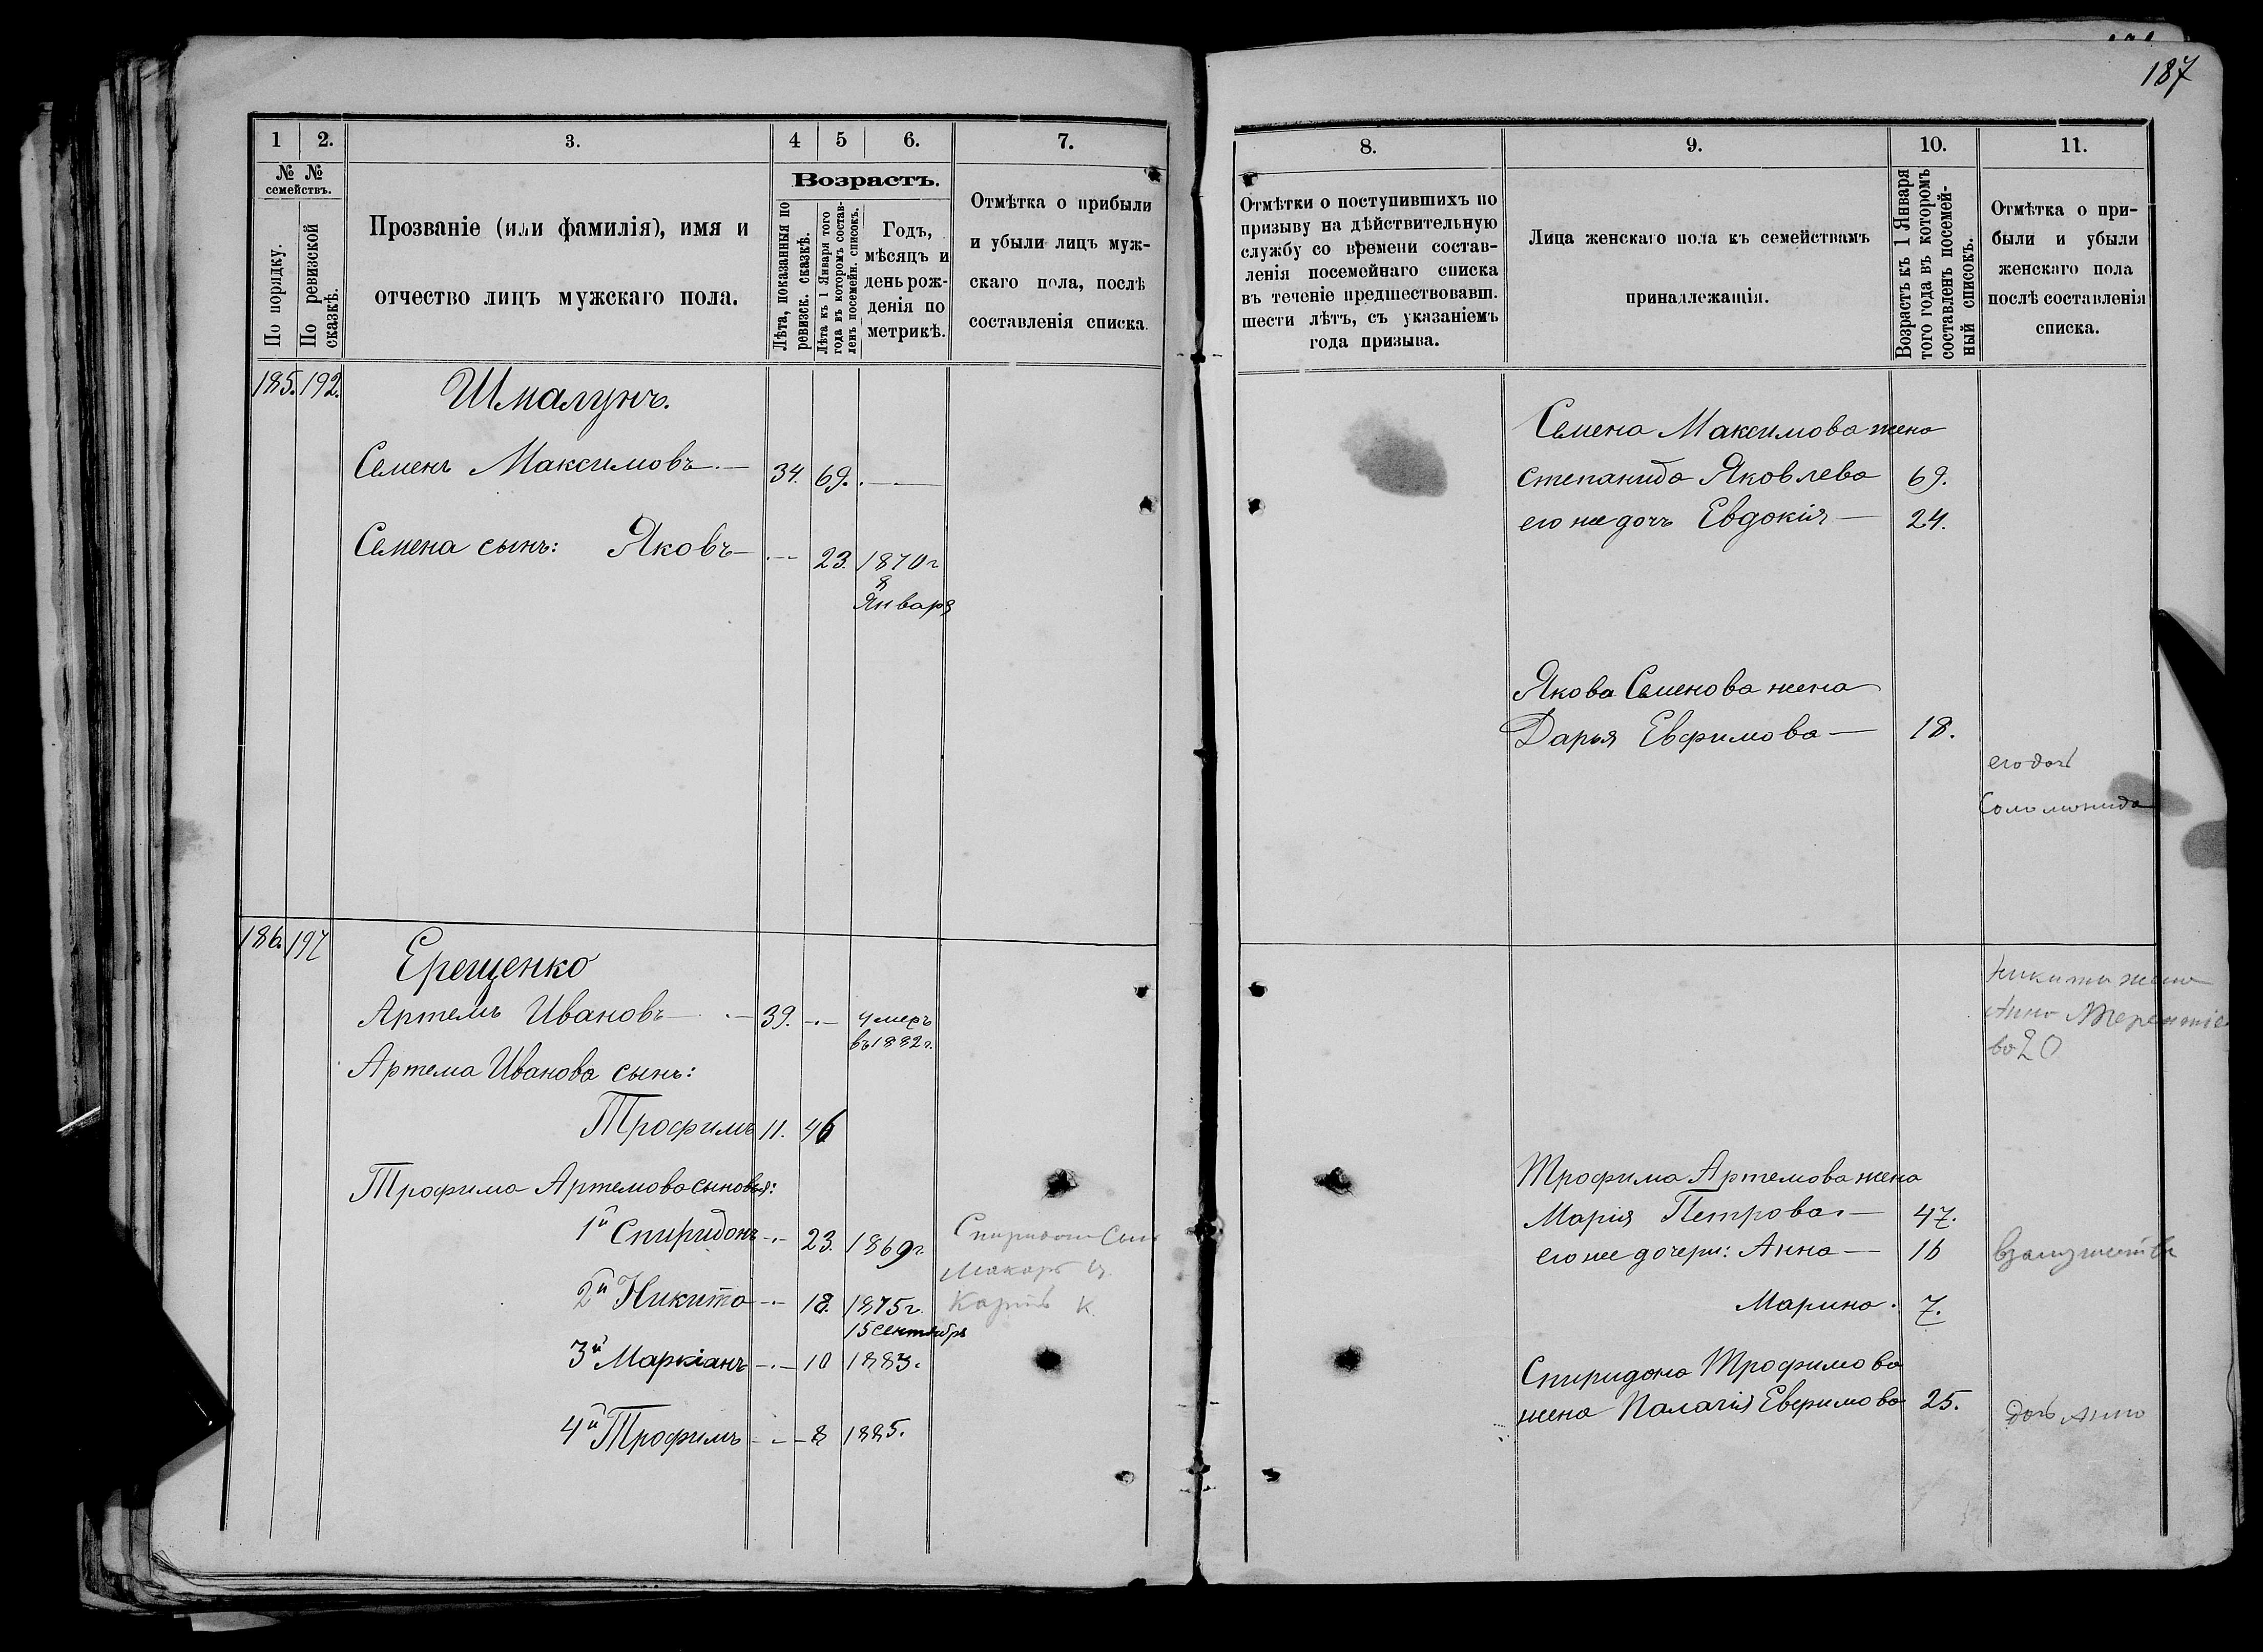 187
1
2.
3.
4
5
6.
7.
№ №
семействъ.
По порядку.
По ревизской
сказкѣ.
Прозваніе (или фамилія), имя и
отчество лицъ мужскаго пола.
Возрастъ.
Лѣта, показанныя по
ревизск. сказкѣ.
Лѣта къ 1 Января того
года въ которомъ состав-
ленъ посемейн. списокъ.
Годъ,
мѣсяцъ и
день рож-
денія по
метрикѣ.
Отмѣтка о прибыли
и убыли лицъ муж-
скаго пола, послѣ
составленія списка.
185. 192.
Шмалунъ.
Семенъ Максимовъ.— 34. 69. —
Семена сынъ: Яковъ— — 23. 1870г
8
Января
186. 197
Ерещенко
Артемъ Ивановъ — 39. — умеръ
въ 1882г.
Артема Иванова сынъ:
Трофимъ 11. 46
Трофима Артемова сыновья:
1й Спиридонъ — 23. 1869г. Спиридон Сын
Макаръ
2й Никита — 18. 1875г. Карпъ К.
15 сентября
3й Маркіанъ — 10 1883.
4й Трофимъ — 8 1885.
8.
9.
10.
11.
Отмѣтки о поступившихъ по
призыву на дѣйствительную
службу со времени состав-
ленія посемейнаго списка
въ теченіе предшествовавш.
шести лѣтъ, съ указаніемъ
года призыва.
Лица женскаго пола къ семействамъ
принадлежащія.
Возрастъ къ 1 Января
того года въ которомъ
составленъ посемей-
ный списокъ.
Отмѣтка о при-
были и убыли
женскаго пола
послѣ составленія
списка.
Семена Максимова жена
Степанида Яковлева 69.
его же дочь Евдокія — 24.
Якова Семенова жена
Дарья Евфимова — 18.
его дочь
Соломонида
Никиты жена
Анна
ва 20
Трофима Артемова жена
Марія Петрова — 47.
его же дочери: Анна — 16 взамужестве
Марина. 7.
Спиридона Трофимова
жена Палагія Евфимова 25. дочь Анна